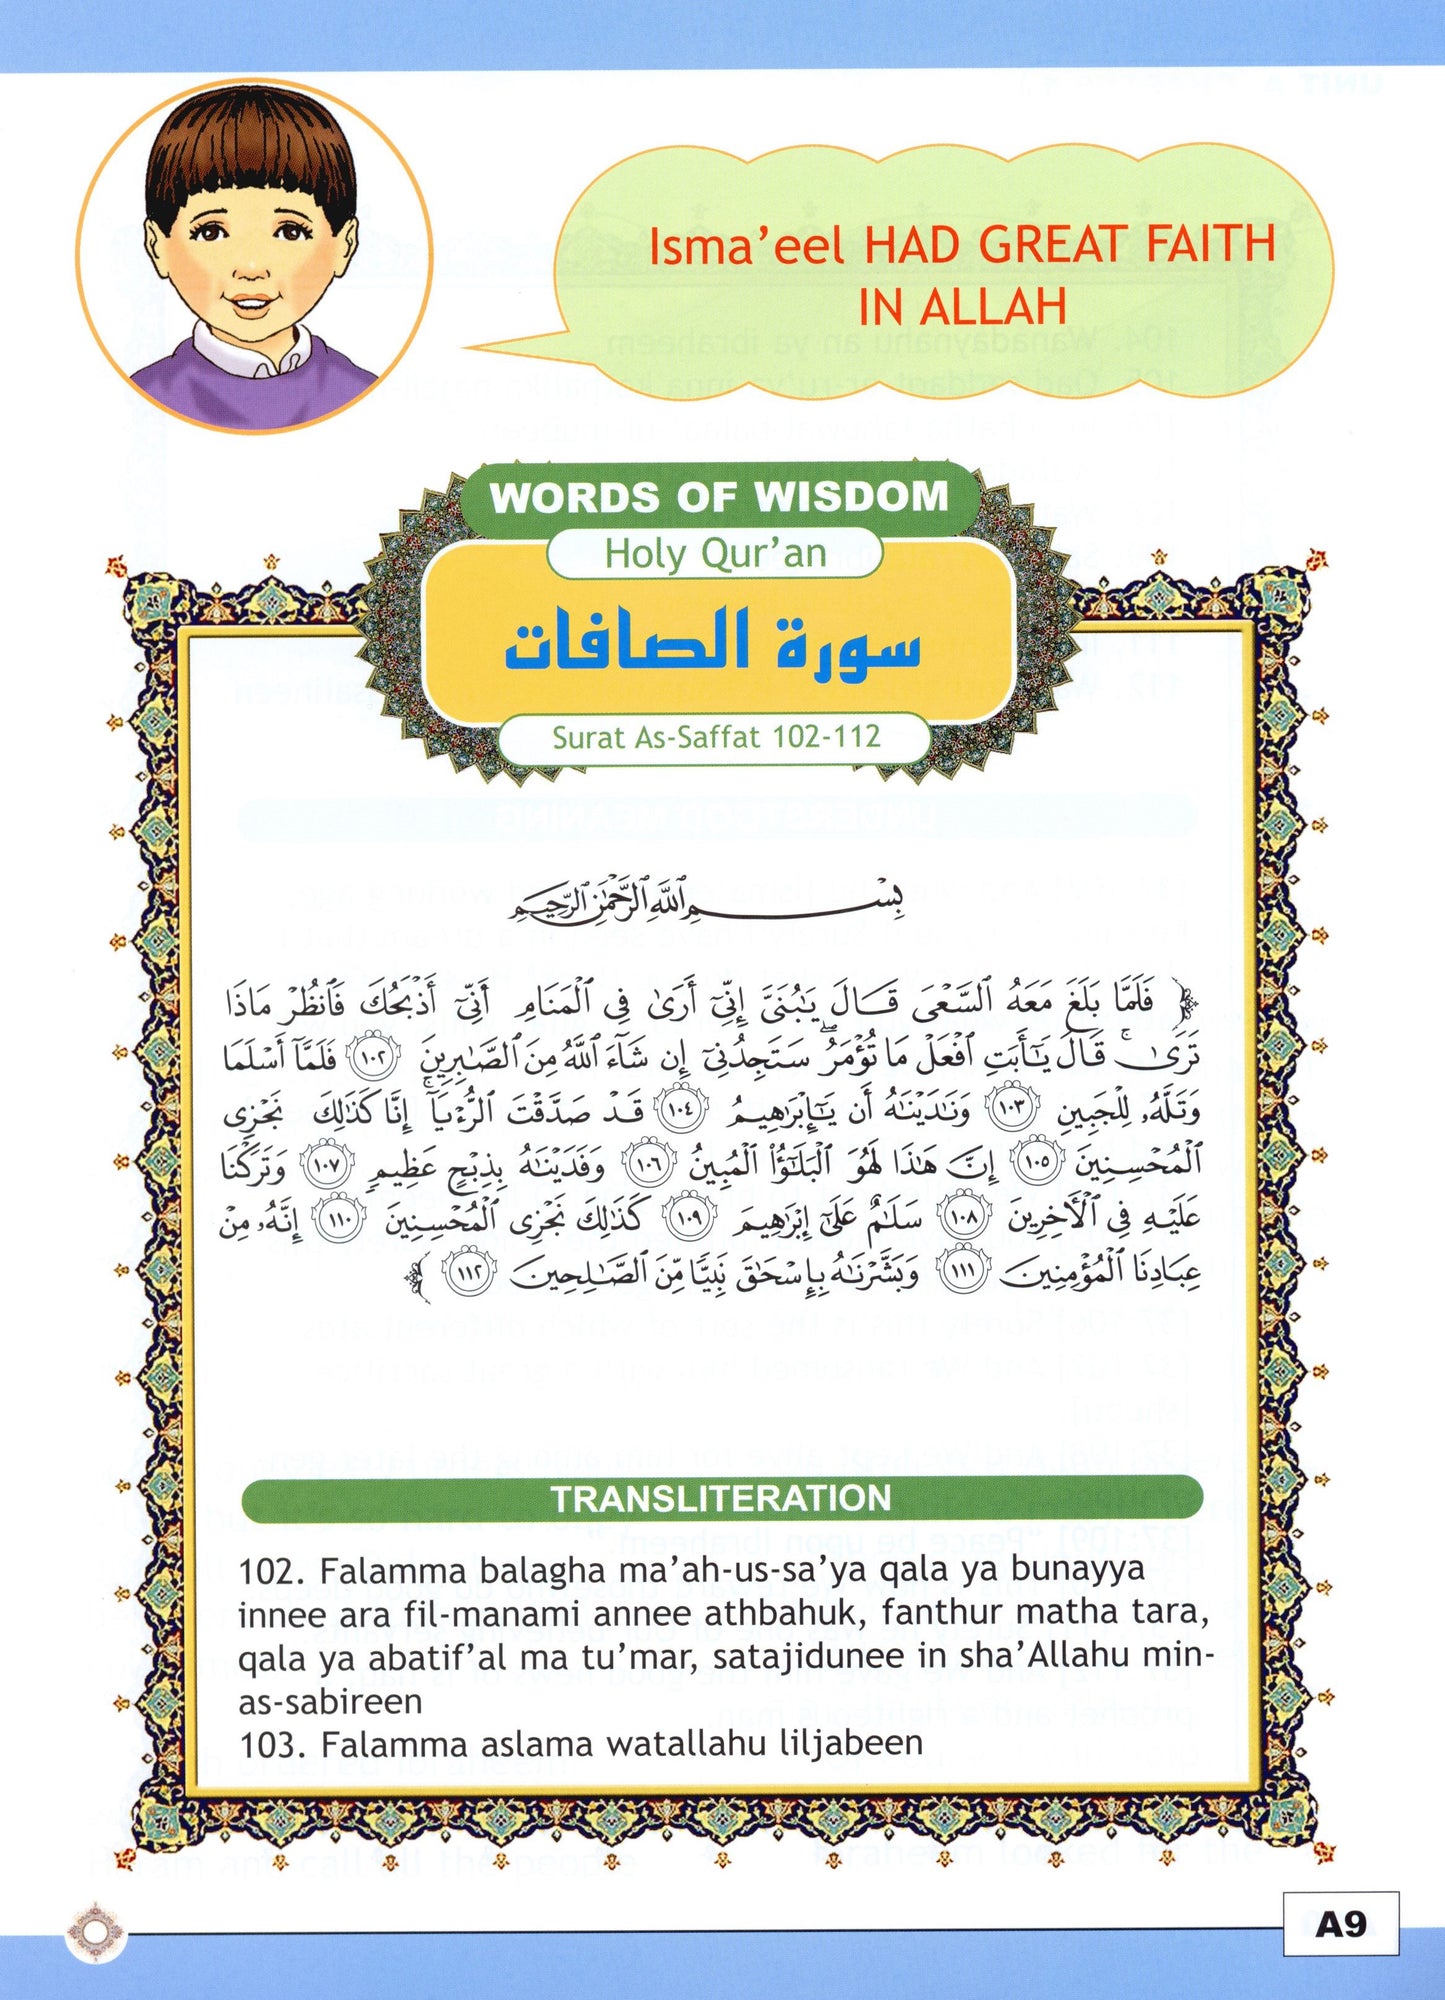 Isma’eel HAD GREAT FAITH
IN ALLAH
WORDS OF WISDOM
Holy Qur’an
سورة الصافات
Surat As-Saffat 102-112
بِسْمِ اللَّهِ الرَّحْمَٰنِ الرَّحِيمِ
﴿ فَلَمَّا بَلَغَ مَعَهُ السَّعْىَ قَالَ يَٰبُنَىَّ إِنِّىٓ أَرَىٰ فِى الْمَنَامِ أَنِّىٓ أَذْبَحُكَ فَانظُرْ مَاذَا
تَرَىٰ ۚ قَالَ يَٰٓأَبَتِ افْعَلْ مَا تُؤْمَرُ ۖ سَتَجِدُنِىٓ إِن شَآءَ اللَّهُ مِنَ الصَّٰبِرِينَ ١٠٢ فَلَمَّآ أَسْلَمَا
وَتَلَّهُۥ لِلْجَبِينِ ١٠٣ وَنَٰدَيْنَٰهُ أَن يَٰٓإِبْرَٰهِيمُ ١٠٤ قَدْ صَدَّقْتَ الرُّءْيَآ ۚ إِنَّا كَذَٰلِكَ نَجْزِى
الْمُحْسِنِينَ ١٠٥ إِنَّ هَٰذَا لَهُوَ الْبَلَٰٓؤُا۟ الْمُبِينُ ١٠٦ وَفَدَيْنَٰهُ بِذِبْحٍ عَظِيمٍ ١٠٧ وَتَرَكْنَا
عَلَيْهِ فِى الْأَخِرِينَ ١٠٨ سَلَٰمٌ عَلَىٰٓ إِبْرَٰهِيمَ ١٠٩ كَذَٰلِكَ نَجْزِى الْمُحْسِنِينَ ١١٠ إِنَّهُۥ مِنْ
عِبَادِنَا الْمُؤْمِنِينَ ١١١ وَبَشَّرْنَٰهُ بِإِسْحَٰقَ نَبِيًّا مِّنَ الصَّٰلِحِينَ ١١٢ ﴾
TRANSLITERATION
102. Falamma balagha ma’ah-us-sa’ya qala ya bunayya
innee ara fil-manami annee athbahuk, fanthur matha tara,
qala ya abatif’al ma tu’mar, satajidunee in sha’Allahu min-
as-sabireen
103. Falamma aslama watallahu liljabeen
A9